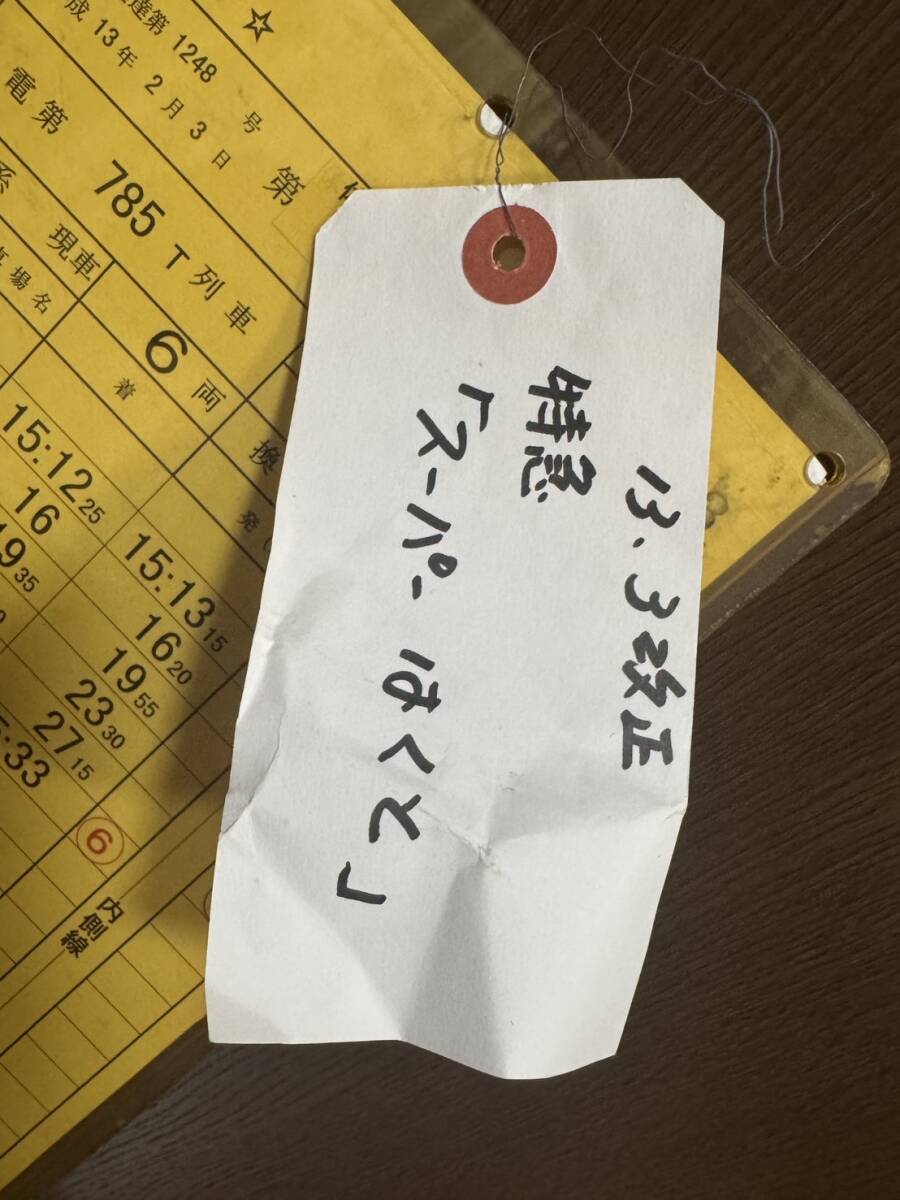 ☆
達第 1248 号
成 13 年 2 月 3 日
第
電第 785 T 列車
系 現車 6 両 換
場名 着 発
15:12 25 15:13 15
16 16 20
19 35 19 55
23 30
27 15
:33
⑥
内側線
13.3改正
特急
「スーパーはくと」